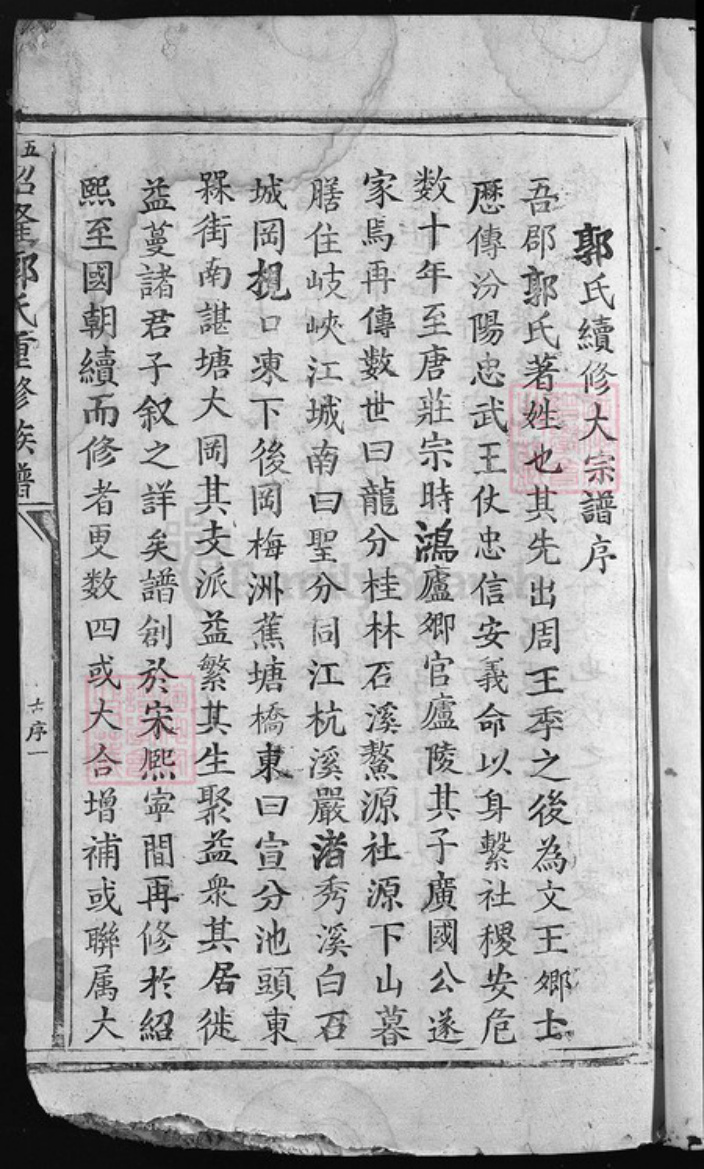 郭氏續修大宗譜序
吾郡郭氏著姓也其先出周王季之後為文王鄉士
歷傳汾陽忠武王仗忠信安義命以身繫社稷安危
数十年至唐莊宗時鴻廬鄉官廬陵其子廣國公遂
家焉再傳数世曰龍分桂林石溪鰲源社源下山暮
膳住岐峽江城南曰聖分同江杭溪嚴渚秀溪白石
城岡挸口凍下後岡梅洲蕉塘橋東曰宣分池頭東
槑街南諶塘大岡其支派益繁其生聚益衆其居徙
益蔓諸君子叙之詳矣譜創於宋熈寧間再修扵紹
熙至國朝續而修者更数四或大合增補或聯属大
五
郭氏重修族譜
序一
FamilySearch